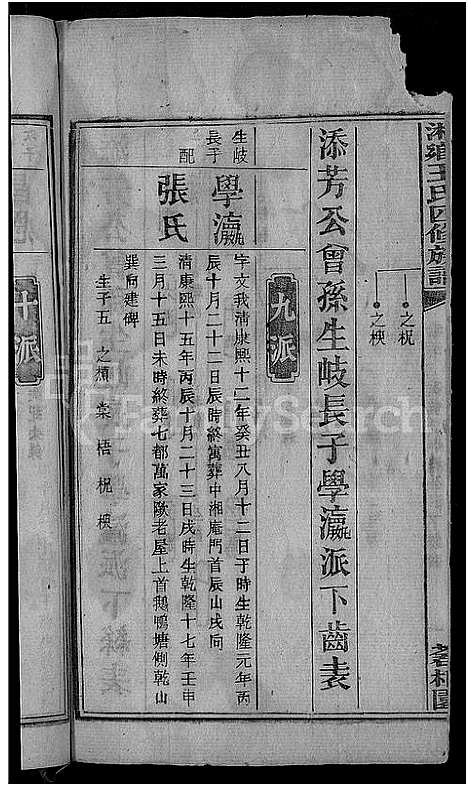 湘鄉王氏四修族譜
之柷
之柍
添芳公曾孫生岐長子學瀛派下齒表
九派
生岐長子
學瀛
字文我清康熙十二年癸丑八月十二日子時生乾隆元年丙
辰十月二十二日辰時終寓葬中湘庵門首辰山戌向
配
張氏
清康熙十五年丙辰十月二十三日戌時生乾隆十七年壬申
三月十五日未時終葬七都萬家陂老屋上首鵝鴨塘側乾山
巽向建碑
生子五 之楨 棠 梧 柷 柍
十派
FamilySearch